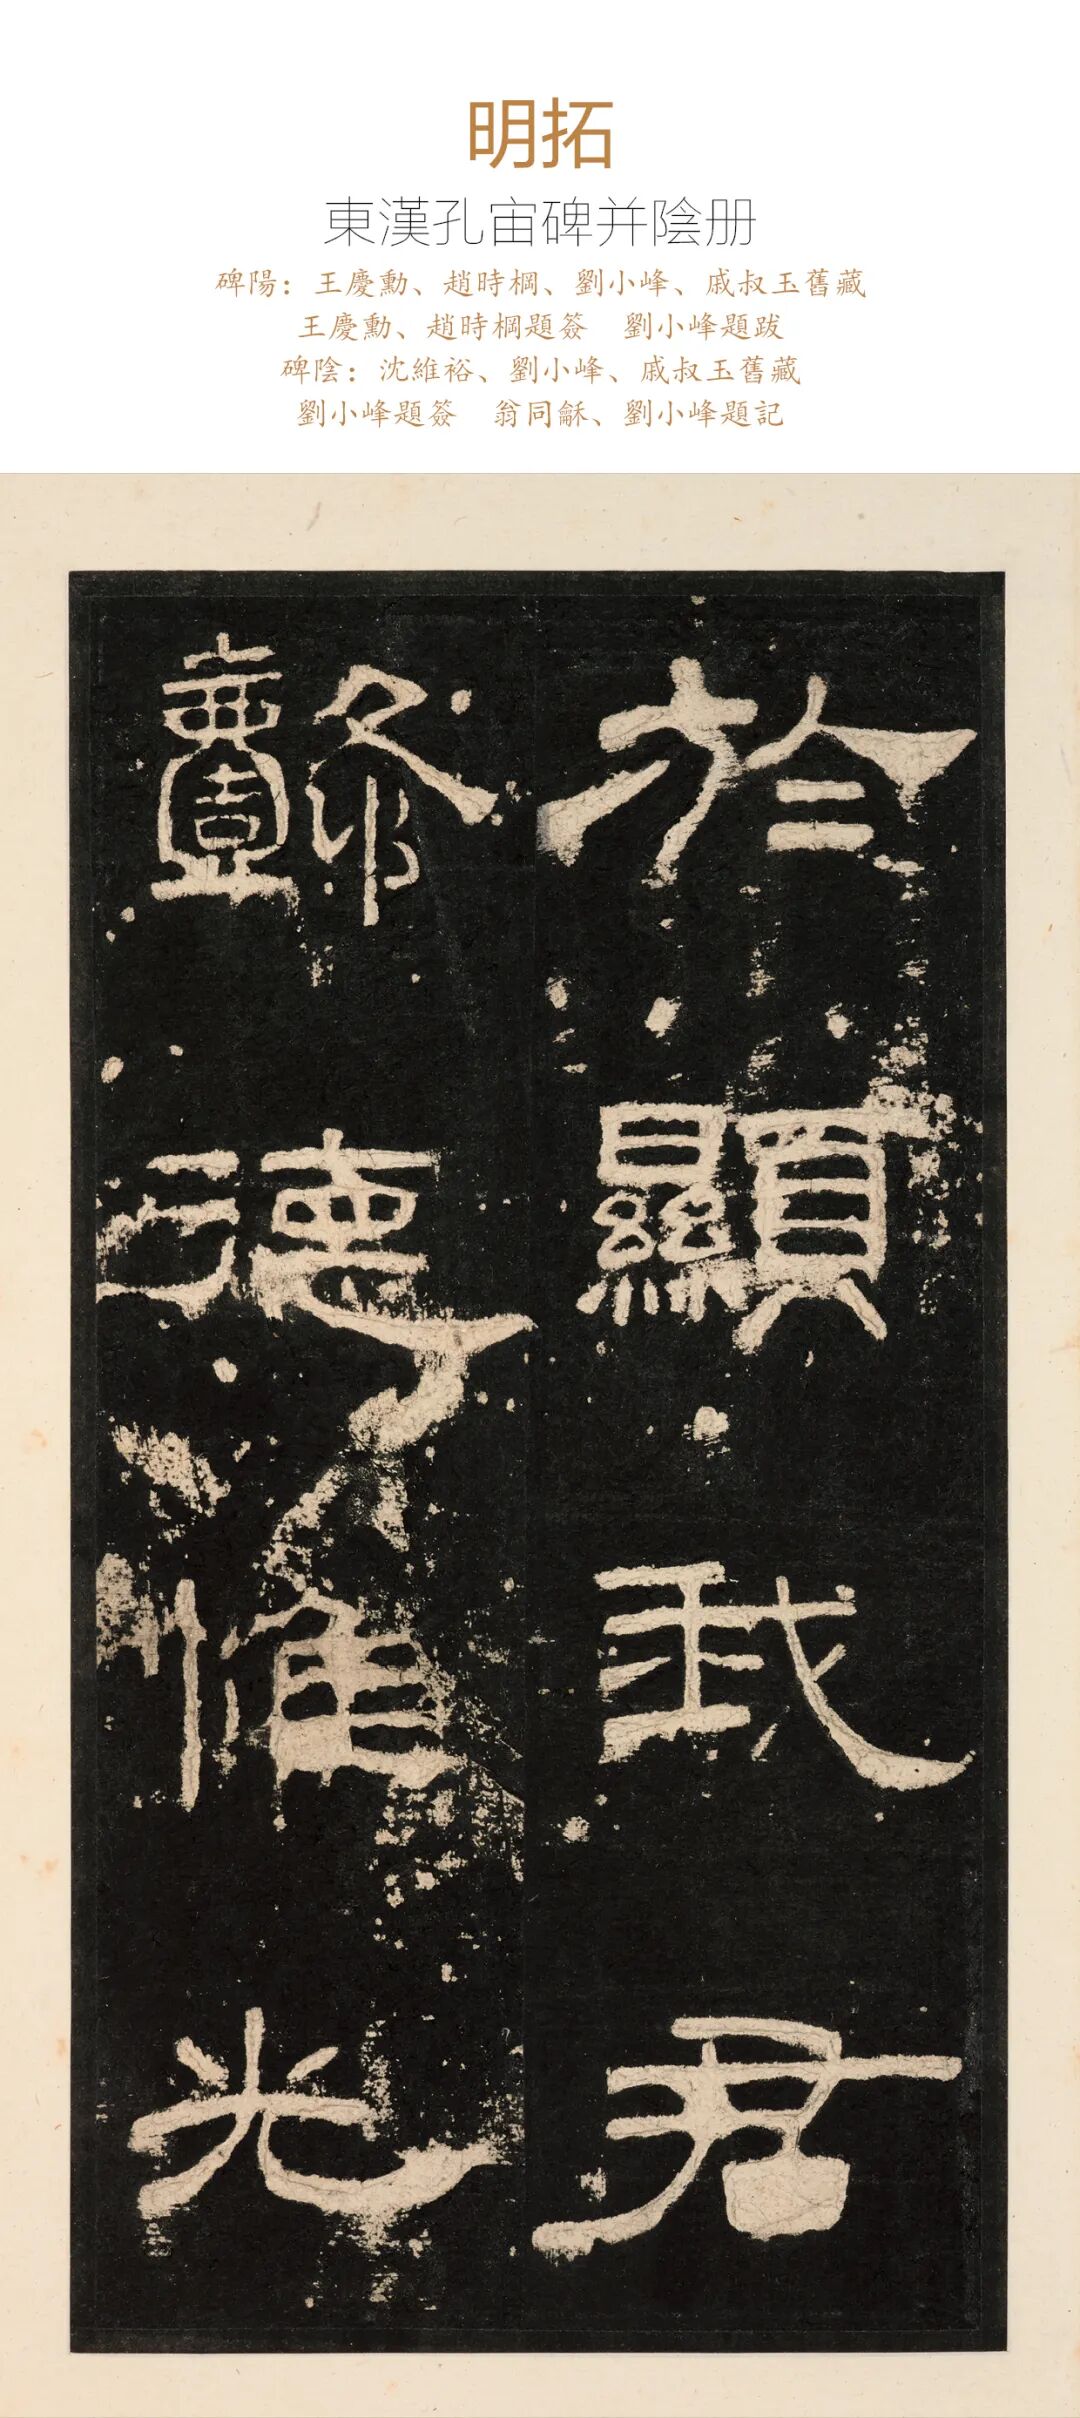 明拓
東漢孔宙碑并陰册
碑陽：王慶勳、趙時棡、劉小峰、戚叔玉舊藏
王慶勳、趙時棡題簽　劉小峰題跋
碑陰：沈維裕、劉小峰、戚叔玉舊藏
劉小峰題簽　翁同龢、劉小峰題記
於顯我君
懿德惟光